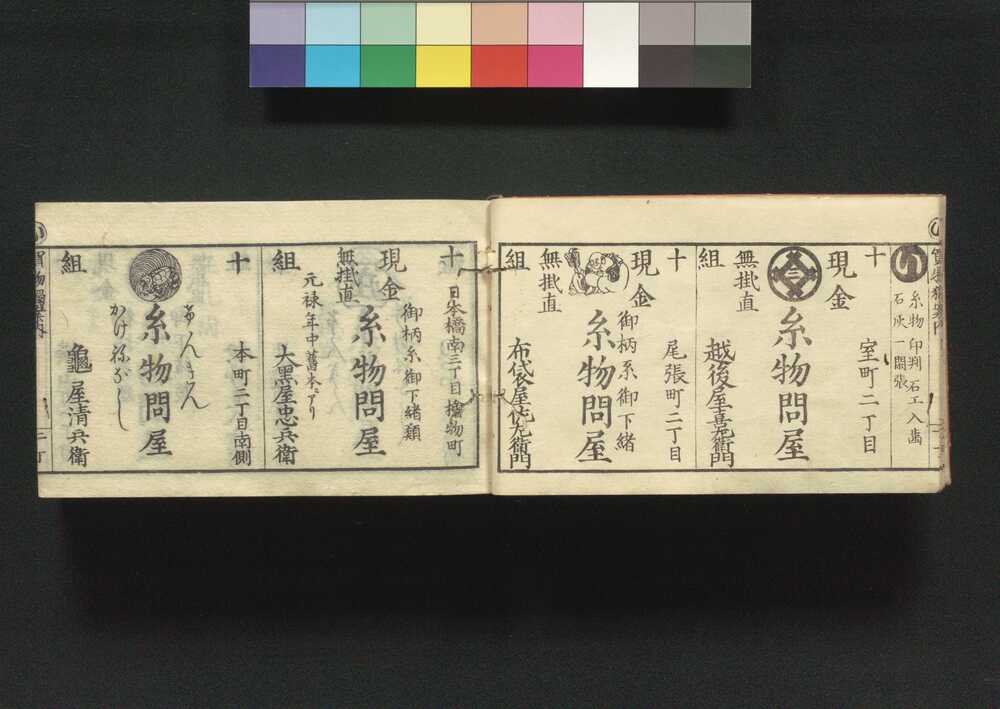 い
糸物 印判 石工 入歯
石灰 一閑張
十 室町二丁目
現金
糸物問屋
無掛直
組 越後屋喜左衛門
十 尾張町二丁目
現金 御柄糸御下緒
糸物問屋
無掛直
組 布袋屋佐左衛門
十 日本橋南三丁目檜物町
御柄糸御下緒類
現金
糸物問屋
無掛直
元禄年中舊本ニアリ
組 大黒屋忠兵衛
十 本町二丁目南側
げんきん
糸物問屋
かけねなし
組 龜屋清兵衛